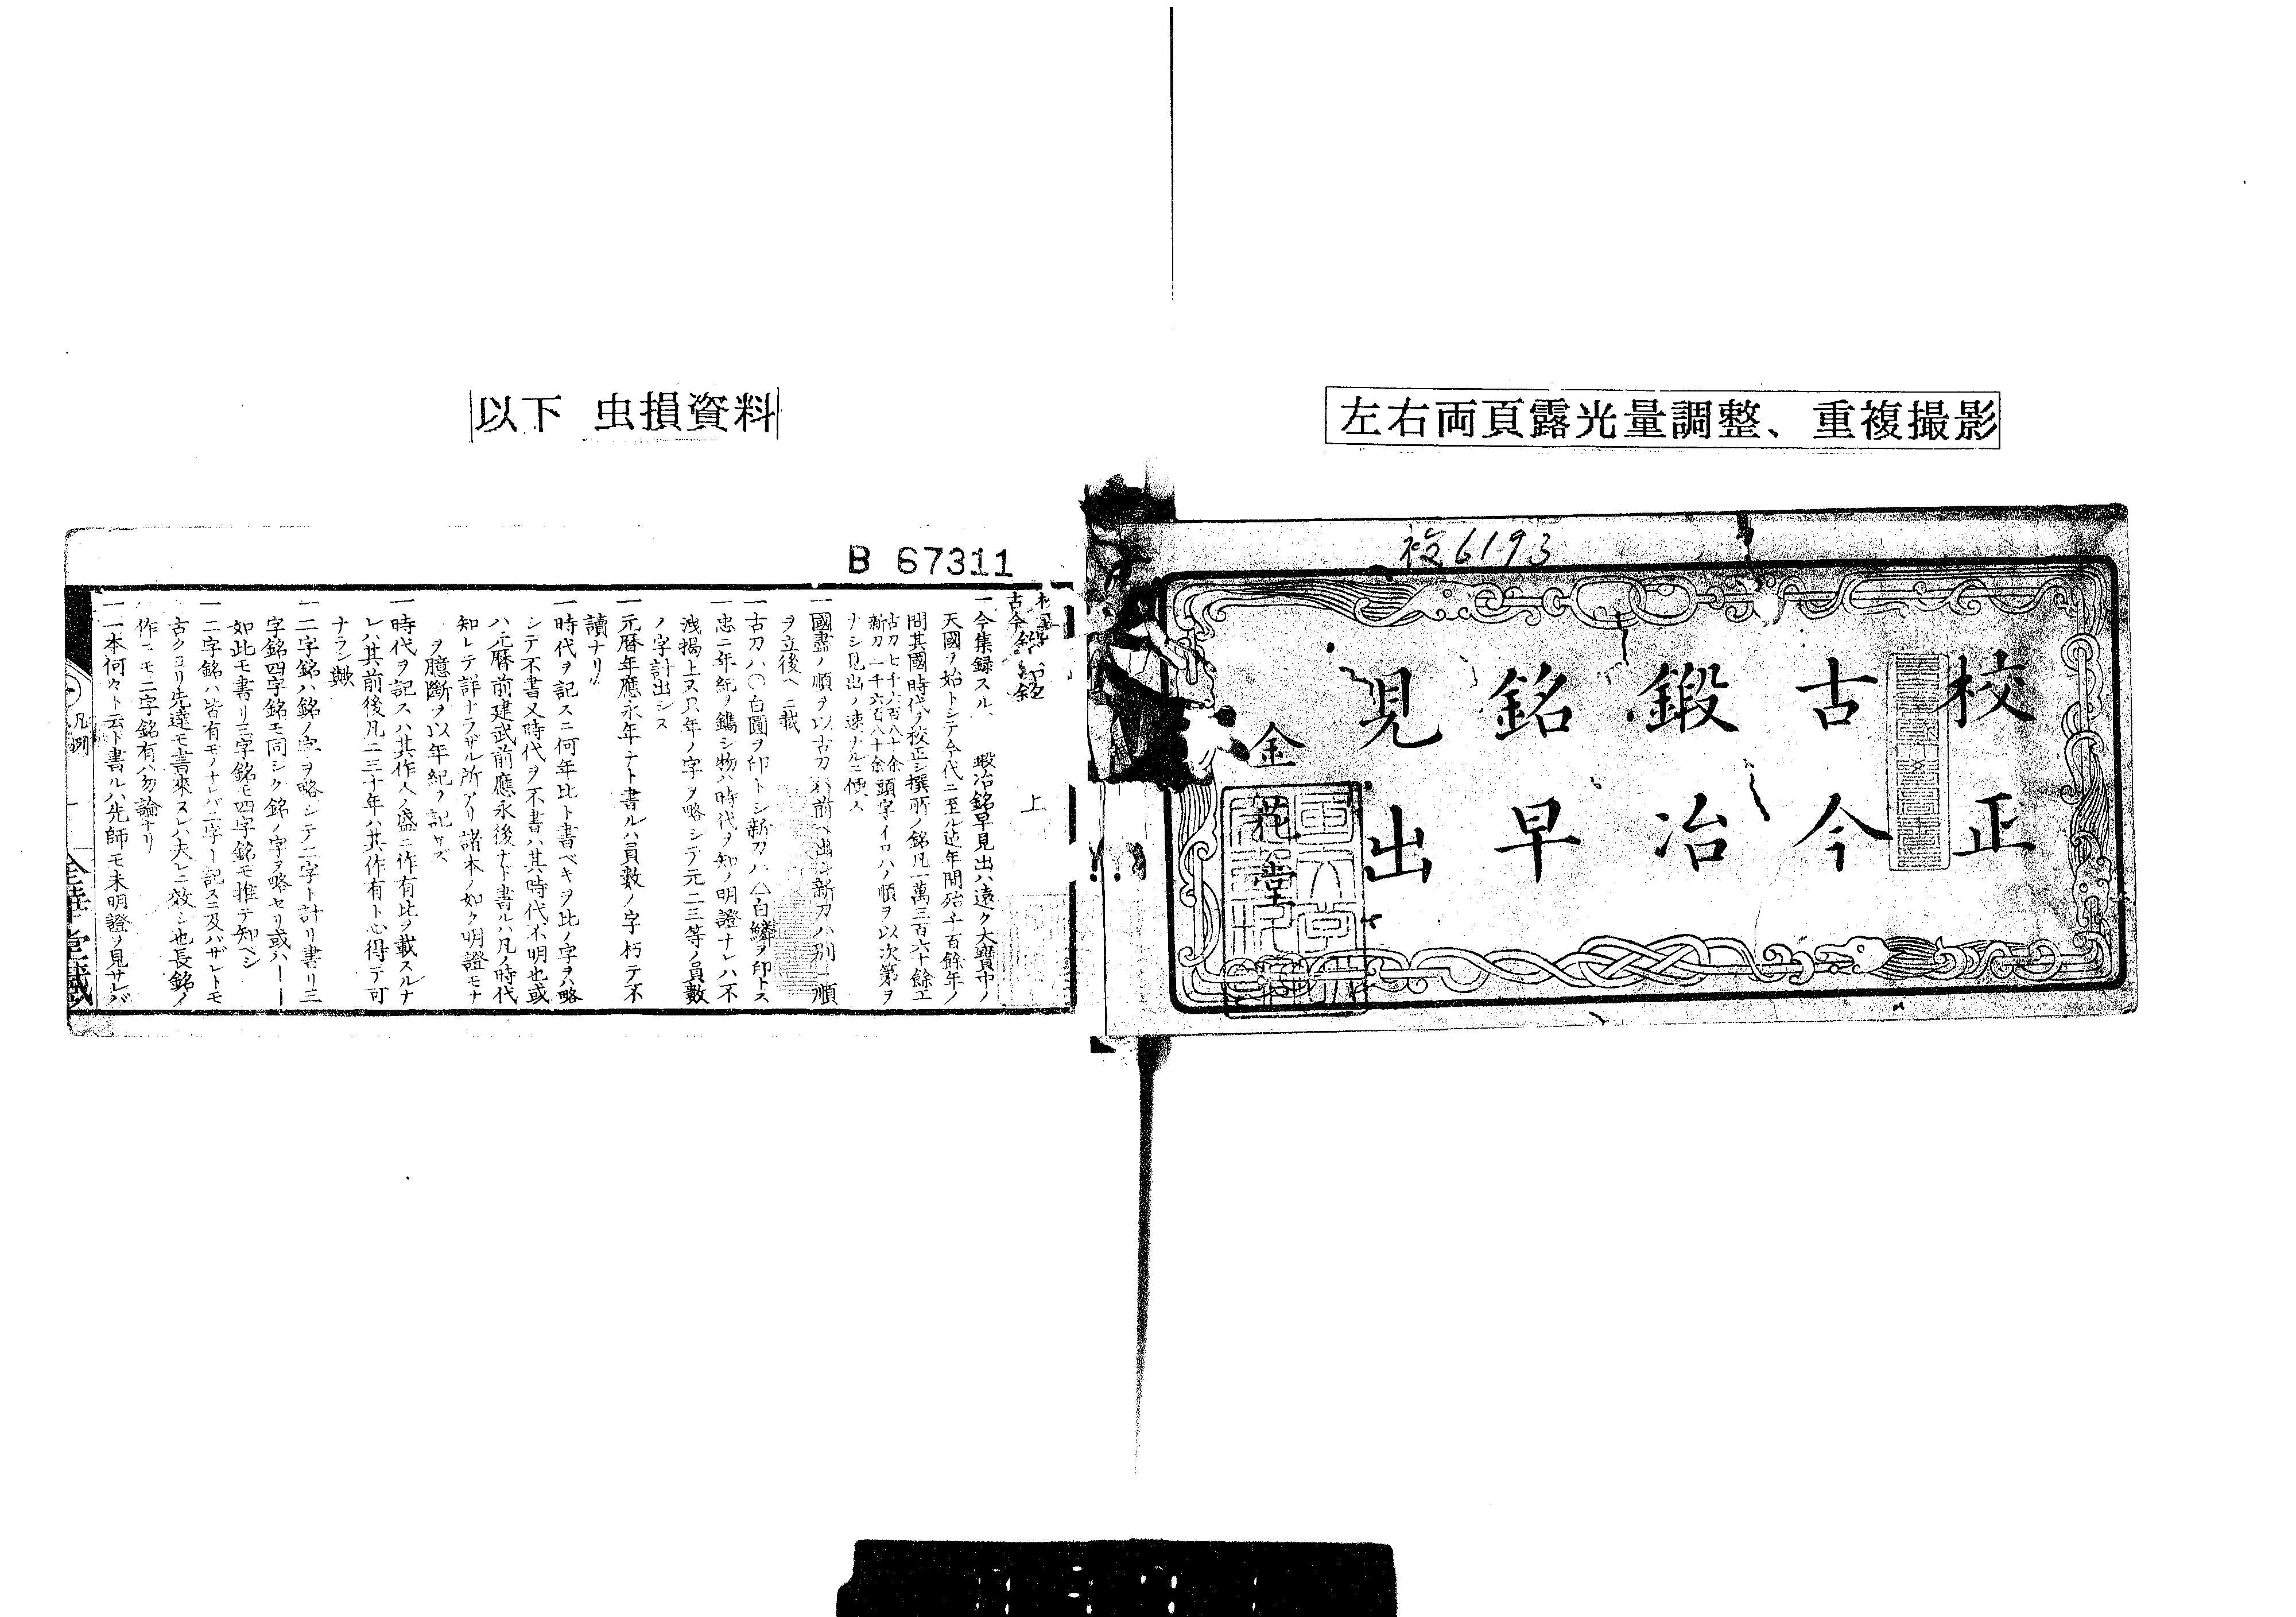 左右両頁露光量調整、重複撮影
以下 虫損資料
複6193
校正
古今
鍛冶
銘早
見出
金花堂
B 67311
古今
上
一今集録スル 鍛冶銘早見出ハ遠ク大寶中ノ
天國ヲ始トシテ今代ニ至ル迄年間殆千百餘年ノ
間其國時代ヲ校正シ撰所ノ銘凡一萬三百六十餘工
古刀七千六百八十余
新刀一千六百八十余
頭字イロハノ順ヲ以次第ヲ
ナシ見出ノ速ナルニ便ス
一國盡ノ順ヲ以古刀ハ前ヘ出シ新刀ハ別ニ順
ヲ立後ヘニ載
一古刀ハ〇白圓ヲ印トシ新刀ハ△白鱗ヲ印トス
一忠ニ年紀ヲ鐫シ物ハ時代ヲ知ノ明證ナレハ不
洩掲上又只年ノ字ヲ略シテ元二三等ノ員數
ノ字計出シス
一元暦年應永年ナト書ルハ員數ノ字朽テ不
讀ナリ
一時代ヲ記スニ何年比ト書ベキヲ比ノ字ヲハ略
シテ不書又時代ヲ不書ハ其時代不明也或
ハ元暦前建武前應永後ナト書ルハ凡ノ時代
知レテ詳ナラザル所アリ諸本ノ如ク明證モナ
ヲ臆斷ヲ以年紀ヲ記サズ
一時代ヲ記スハ其作人ノ盛ニ作有比ヲ載スルナ
レハ其前後凡二三十年ハ其作有ト心得テ可
ナラン歟
一二字銘ハ銘ノ字ヲ略シテ二字ト計リ書リ三
字銘四字銘モ同シク銘ノ字ヲ略セリ或ハ
如此モ書リ三字銘モ四字銘モ推テ知ベシ
一二字銘ハ皆有モノナレバ二字ト記スニ及バザレトモ
古クヨリ先達モ書來スレハ夫レニ效シ也長銘ノ
作ニモ二字銘有ハ勿論ナリ
一一本何々ト云ト書ルハ先師モ未明證ヲ見サレバ
凡例
金華堂藏